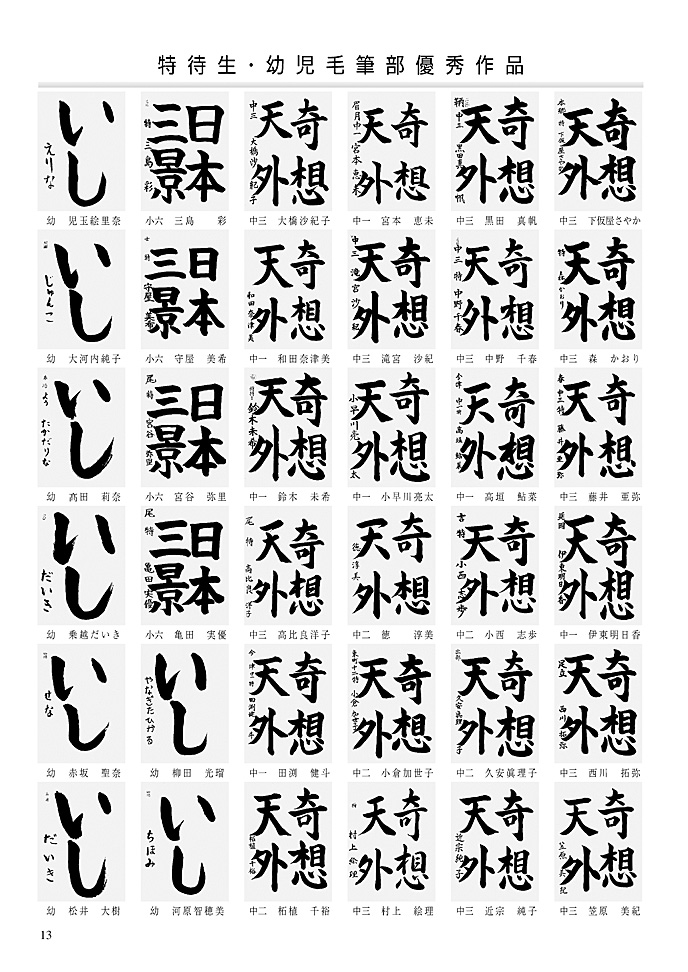 特待生・幼児毛筆部優秀作品
いし えりな
日本三景 特 三島 彩
奇想天外 中三 大橋沙紀子
奇想天外 眉月中一 宮本恵未
奇想天外 中三 黒田真帆
奇想天外
幼 児玉絵里奈
小六 三島 彩
中三 大橋沙紀子
中一 宮本 恵未
中三 黒田 真帆
中三 下仮屋さやか
いし じゅんこ
日本三景 守屋 美希
奇想天外 和田奈津美
奇想天外 中三 滝宮沙紀
奇想天外 中三 特 中野千春
奇想天外 特 森かおり
幼 大河内純子
小六 守屋 美希
中一 和田奈津美
中三 滝宮 沙紀
中三 中野 千春
中三 森 かおり
いし たかだりな
日本三景 尾 特 宮谷 弥里
奇想天外 鈴木未希
奇想天外 小早川亮太
奇想天外 今津 中一 高垣鮎菜
奇想天外 春 中三特 藤井亜弥
幼 髙田 莉奈
小六 宮谷 弥里
中一 鈴木 未希
中一 小早川亮太
中一 高垣 鮎菜
中三 藤井 亜弥
いし だいき
日本三景 尾 特 亀田実優
奇想天外 尾 特 高比良洋子
奇想天外 徳淳美
奇想天外 特 小西志歩
奇想天外 伊東明日香
幼 乗越だいき
小六 亀田 実優
中三 高比良洋子
中二 徳 淳美
中二 小西 志歩
中一 伊東明日香
いし せな
いし やなぎだひかる
奇想天外 今津 田渕健斗
奇想天外 小倉加世子
奇想天外 久安眞理子
奇想天外 足立 西川拓弥
幼 赤坂 聖奈
幼 柳田 光瑠
中一 田渕 健斗
中二 小倉加世子
中二 久安眞理子
中三 西川 拓弥
いし だいき
いし ちほみ
奇想天外 柘植千裕
奇想天外 村上絵理
奇想天外 近宗純子
奇想天外 笠原美紀
幼 松井 大樹
幼 河原智穂美
中二 柘植 千裕
中三 村上 絵理
中三 近宗 純子
中三 笠原 美紀
13